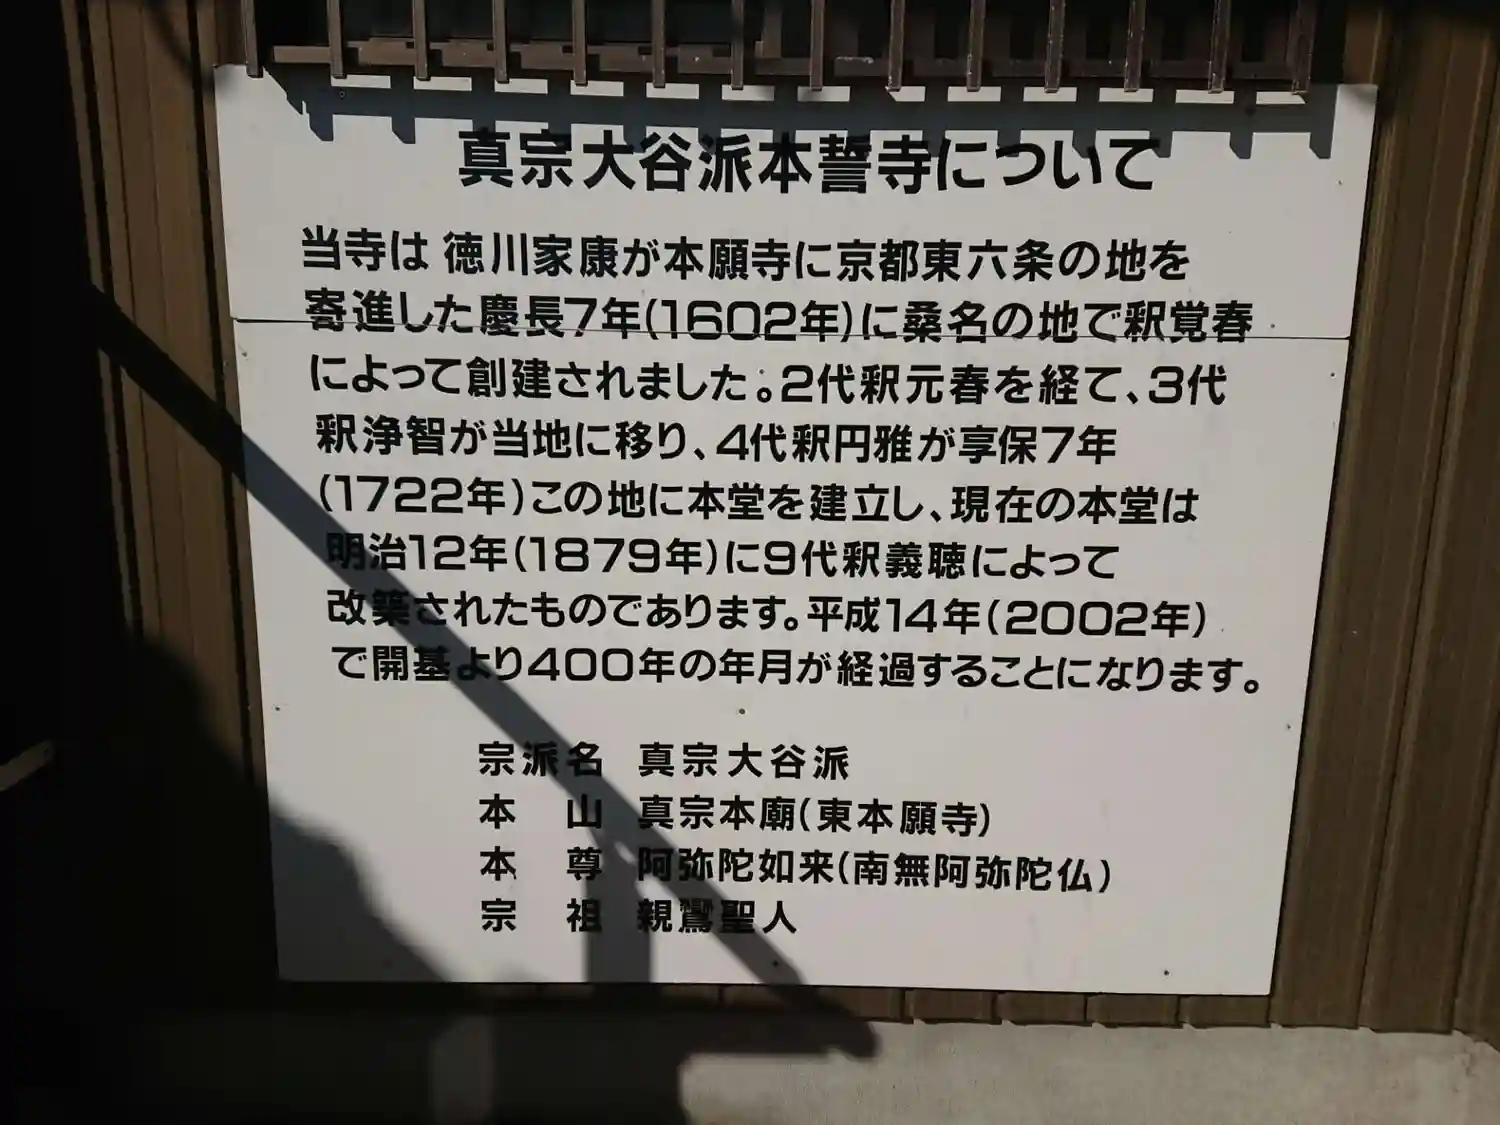 真宗大谷派本誓寺について
当寺は 徳川家康が本願寺に京都東六条の地を
寄進した慶長7年(1602年)に桑名の地で釈覚春
によって創建されました。2代釈元春を経て、3代
釈浄智が当地に移り、4代釈円雅が享保7年
(1722年)この地に本堂を建立し、現在の本堂は
明治12年(1879年)に9代釈義聴によって
改築されたものであります。平成14年(2002年)
で開基より400年の年月が経過することになります。
宗派名 真宗大谷派
本 山 真宗本廟(東本願寺)
本 尊 阿弥陀如来(南無阿弥陀仏)
宗 祖 親鸞聖人